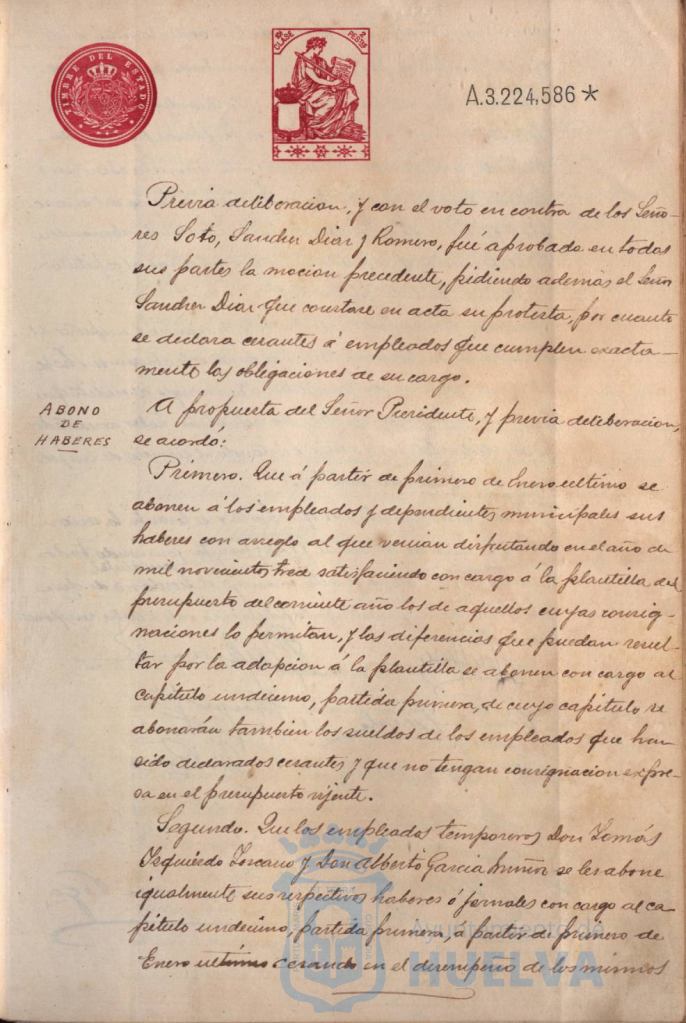 TIMBRE DEL ESTADO
CLASE 8ª 2 PESETAS
A.3.224,586*
Previa deliberacion, y con el voto en contra de los Seño-
res Soto, Sanchez Diaz y Romero, fué aprobada en todas
sus partes la mocion precedente, pidiendo además el Señor
Sanchez Diaz que constase en acta su protesta, por cuanto
se declara cesantes á empleados que cumplen exacta-
mente las obligaciones de su cargo.
ABONO
DE
HABERES
A propuesta del Señor Presidente, y previa deliberacion,
se acordó:
Primero. Que á partir de primero de Enero ultimo se
abonen á los empleados y dependientes municipales sus
haberes con arreglo al que venian disfrutando en el año de
mil novecientos trece satisfaciendo con cargo á la plantilla del
presupuesto del corriente año los de aquellos cuyas consig-
naciones lo permitan, y las diferencias que puedan resul-
tar por la adapcion á la plantilla se abonen con cargo al
capitulo undecimo, partida primera, de cuyo capitulo se
abonarán tambien los sueldos de los empleados que han
sido declarados cesantes y que no tengan consignacion expre-
sa en el presupuesto vijente.
Segundo. Que los empleados temporeros Don Tomás
Izquierdo Toscano y Don Alberto Garcia Muñoz se les abone
igualmente sus respectivos haberes ó jornales con cargo al ca-
pitulo undecimo, partida primera, á partir de primero de
Enero ultimo cesando en el desempeño de los mismos
Ayuntamiento de
HUELVA